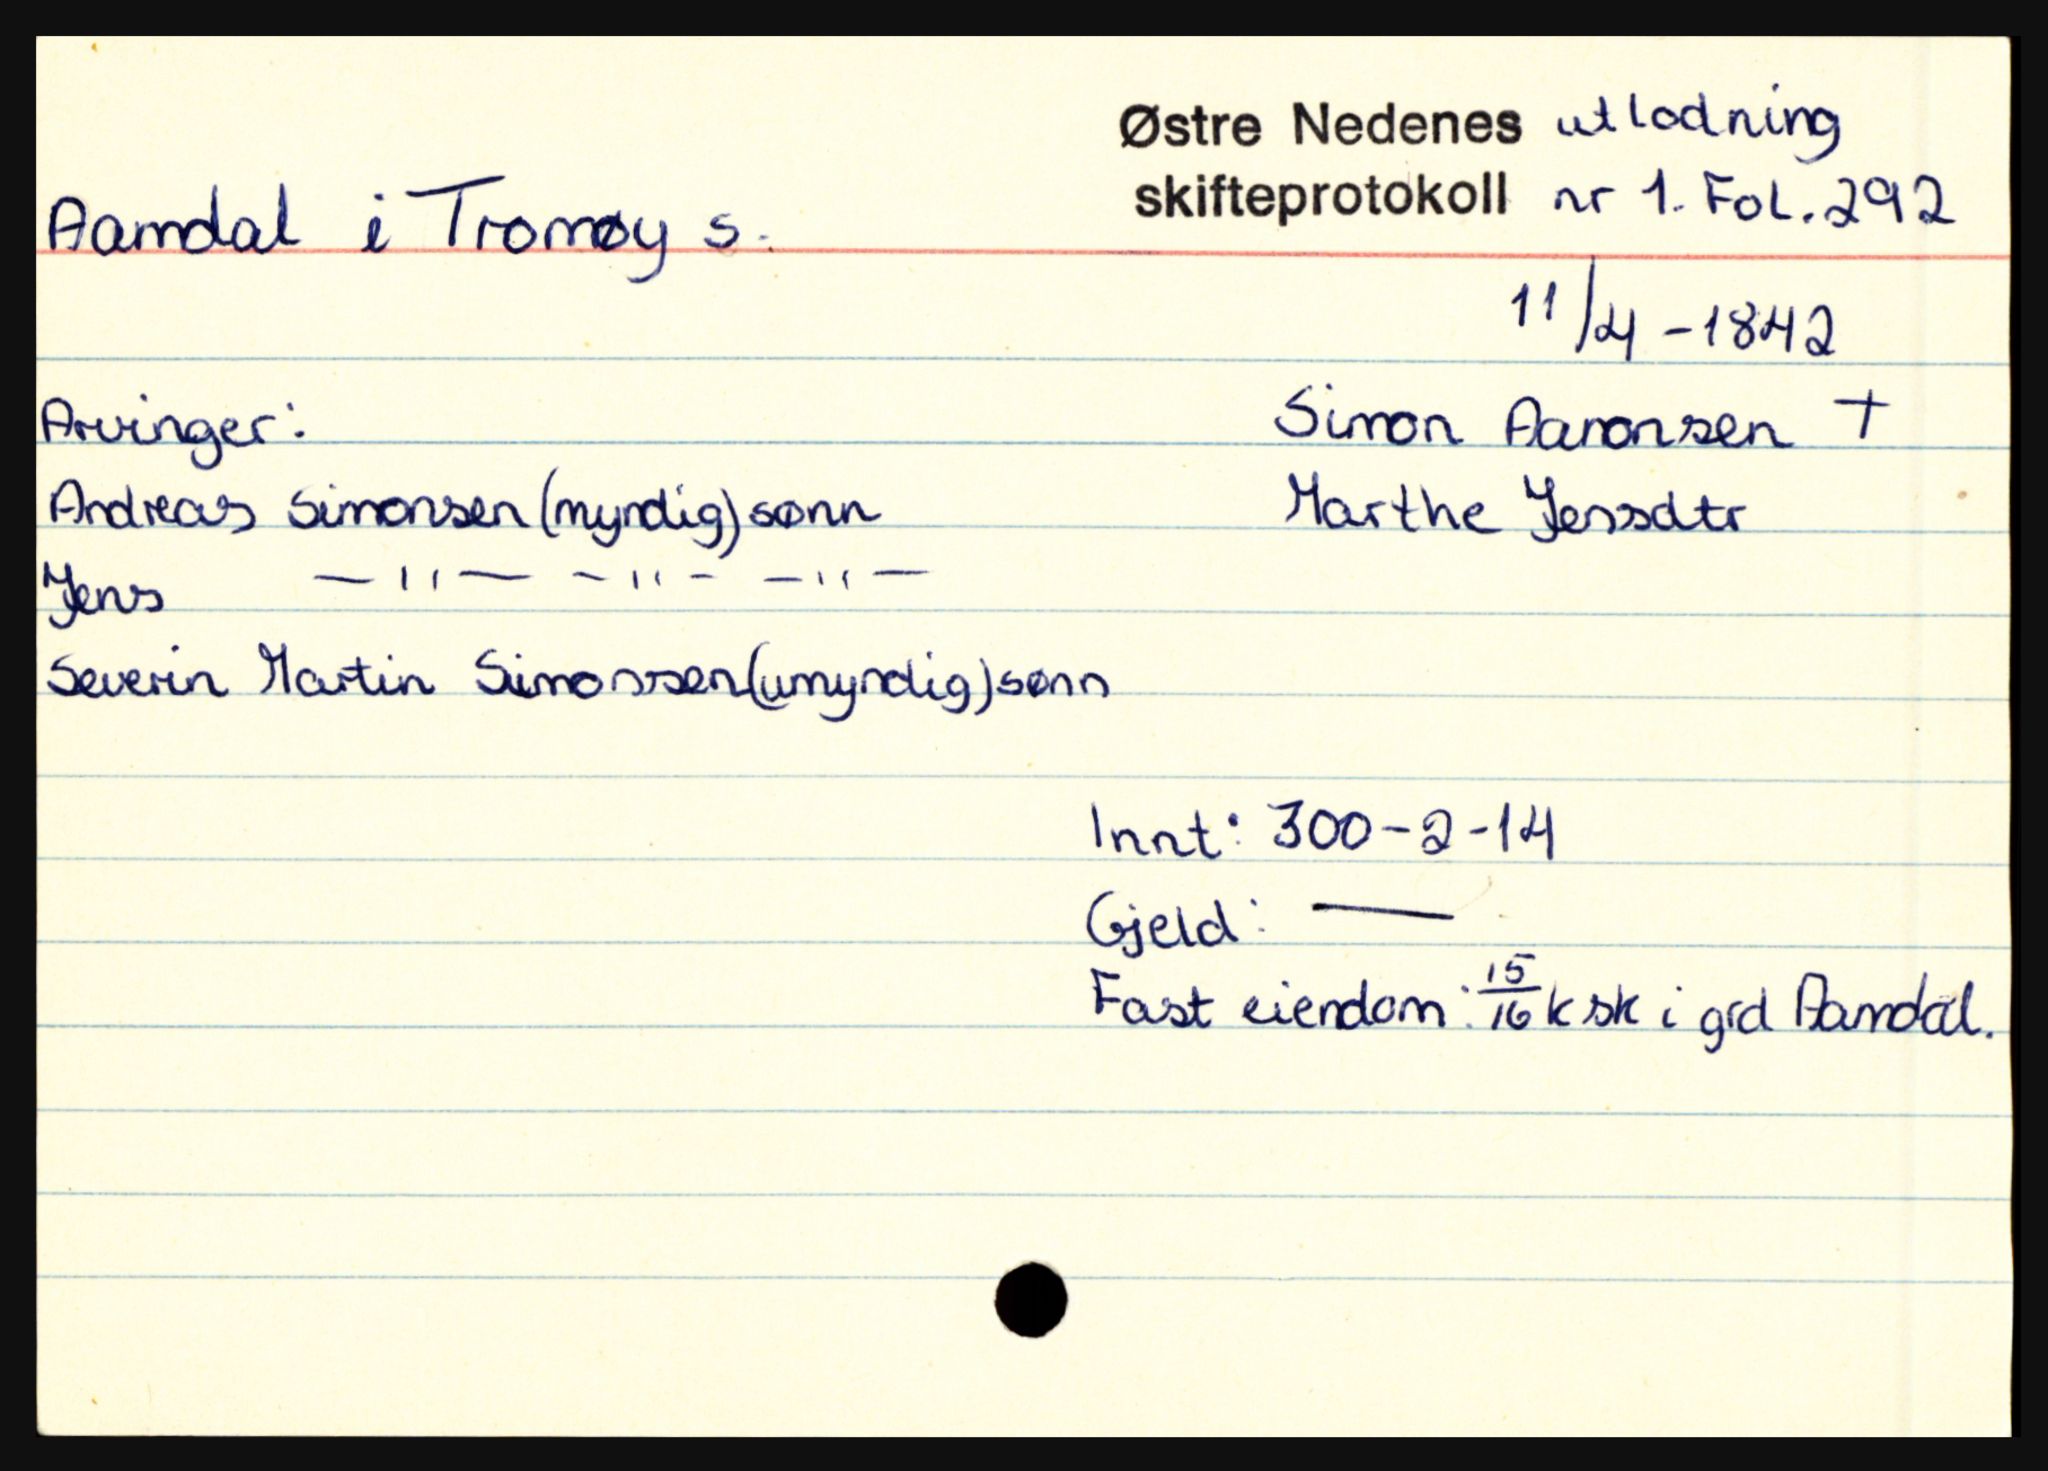 Østre Nedenes utlodning
skifteprotokoll nr 1. Fol. 292
Aamdal i Tromøy s.
11/4-1842
Arvinger:
Simon Aaronsen +
Andreas Simonsen (myndig) sønn
Marthe Jensdtr
Jens —"— —"— —"—
Severin Martin Simonsen (umyndig) sønn
Innt: 300-2-14
Gjeld: —
Fast eiendom: 15/16 k sk i grd Aamdal.